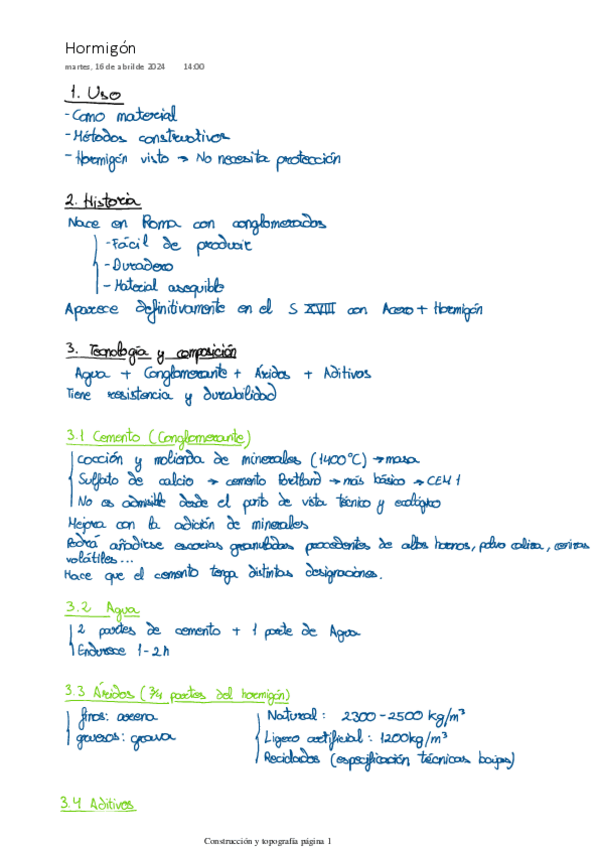 Hormigón
martes, 16 de abril de 2024 14:00
1. Uso
- Como material
- Métodos constructivos
- Hormigón visto → No necesita protección
2. Historia
Nace en Roma con conglomerados
- Fácil de producir
- Duradero
- Material asequible
Aparece definitivamente en el S XVIII con Acero + Hormigón
3. Tecnología y composición
Agua + Conglomerante + Áridos + Aditivos
Tiene resistencia y durabilidad
3.1 Cemento (Conglomerante)
cocción y molienda de minerales (1400°C) → masa
Sulfato de calcio → cemento Portland → más básico → CEM 1
No es admisible desde el punto de vista técnico y ecológico
Mejora con la adición de minerales
Podrá añadirse escorias granuladas procedentes de altos hornos, polvo caliza, cenizas
volátiles...
Hace que el cemento tenga distintas designaciones.
3.2 Agua
2 partes de cemento + 1 parte de Agua
Endurece 1-2h
3.3 Áridos (3/4 partes del hormigón)
finos: arena
gruesos: grava
Natural: 2300-2500 kg/m³
Ligero artificial: 1200kg/m³
Reciclados (especificación técnicas bajas)
3.4 Aditivos
Construcción y topografía página 1